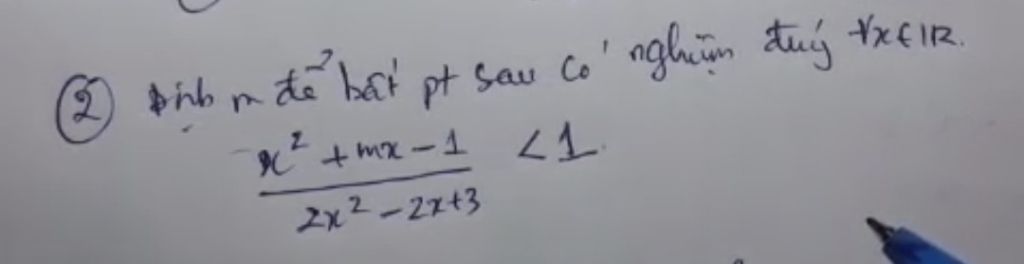 ② Định m để bất pt sau có nghiệm đuý ∀x∈ℝ.
x² + mx - 1 < 1.
2x² - 2x+3